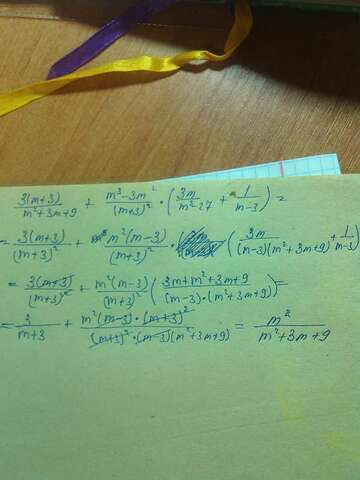 3(m+3)/(m²+3m+9) + (m³-3m)/(m+3)² · (3m/(m³-27) + 1/(m-3)) =
= 3(m+3)/(m+3)² + m²(m-3)/(m+3)² · (3m/((m-3)(m²+3m+9)) + 1/(m-3))
= 3(m+3)/(m+3)² + m²(m-3)/(m+3)² (3m+m²+3m+9/((m-3)·(m²+3m+9))) =
= 3/(m+3) + m²(m-3)·(m+3)²/((m+3)²·(m-3)(m²+3m+9)) = m²/(m²+3m+9)